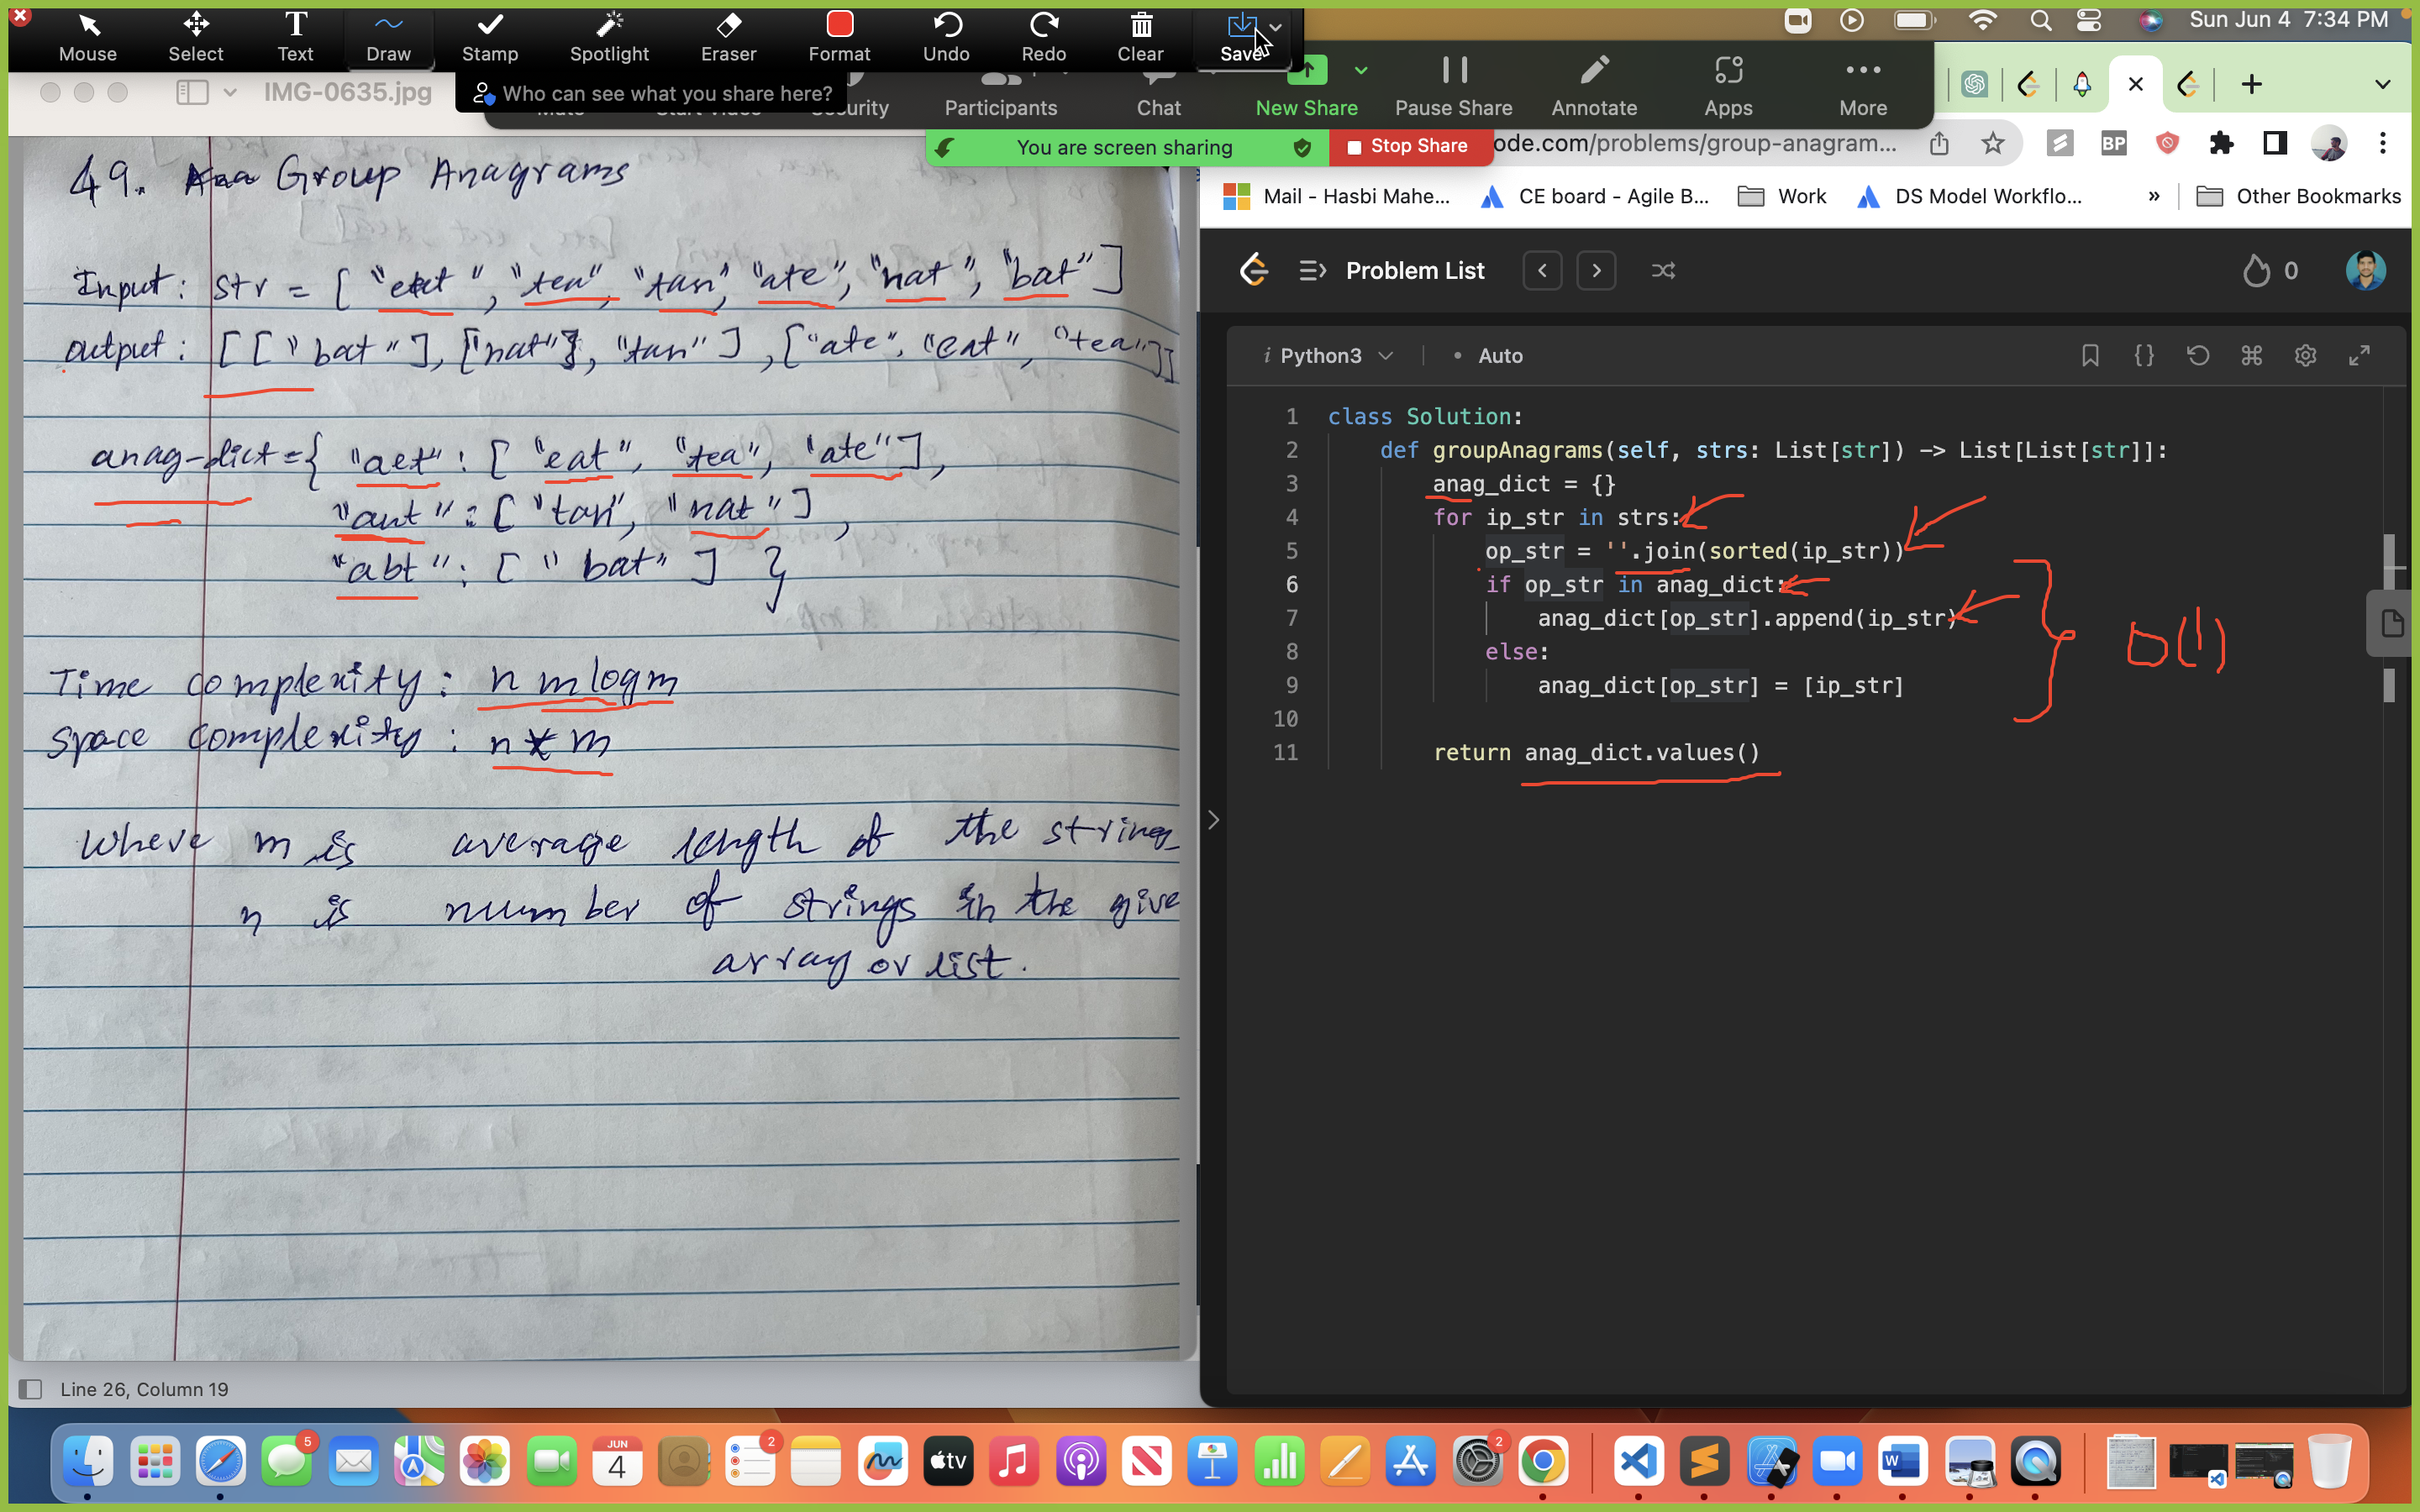 Mouse Select Text Draw Stamp Spotlight Eraser Format Undo Redo Clear Save
Sun Jun 4 7:34 PM
IMG-0635.jpg
Who can see what you share here?
Participants Chat New Share Pause Share Annotate Apps More
You are screen sharing Stop Share
ode.com/problems/group-anagram...
BP
Mail - Hasbi Mahe... CE board - Agile B... Work DS Model Workflo... » Other Bookmarks
49. Group Anagrams
Input: str = ["eat", "tea", "tan", "ate", "nat", "bat"]
output: [["bat"], ["nat", "tan"], ["ate", "eat", "tea"]]
anag-dict = { "aet": ["eat", "tea", "ate"],
"ant": ["tan", "nat"],
"abt": ["bat"] }
Time complexity: n m log m
Space complexity: n * m
Where m is average length of the string
n is number of strings in the give
array or list.
Line 26, Column 19
Problem List
0
i Python3 • Auto
1 class Solution:
2 def groupAnagrams(self, strs: List[str]) -> List[List[str]]:
3 anag_dict = {}
4 for ip_str in strs:
5 op_str = ''.join(sorted(ip_str))
6 if op_str in anag_dict:
7 anag_dict[op_str].append(ip_str)
8 else:
9 anag_dict[op_str] = [ip_str]
10
11 return anag_dict.values()
O(1)
5
JUN
4
2
tv
2
W